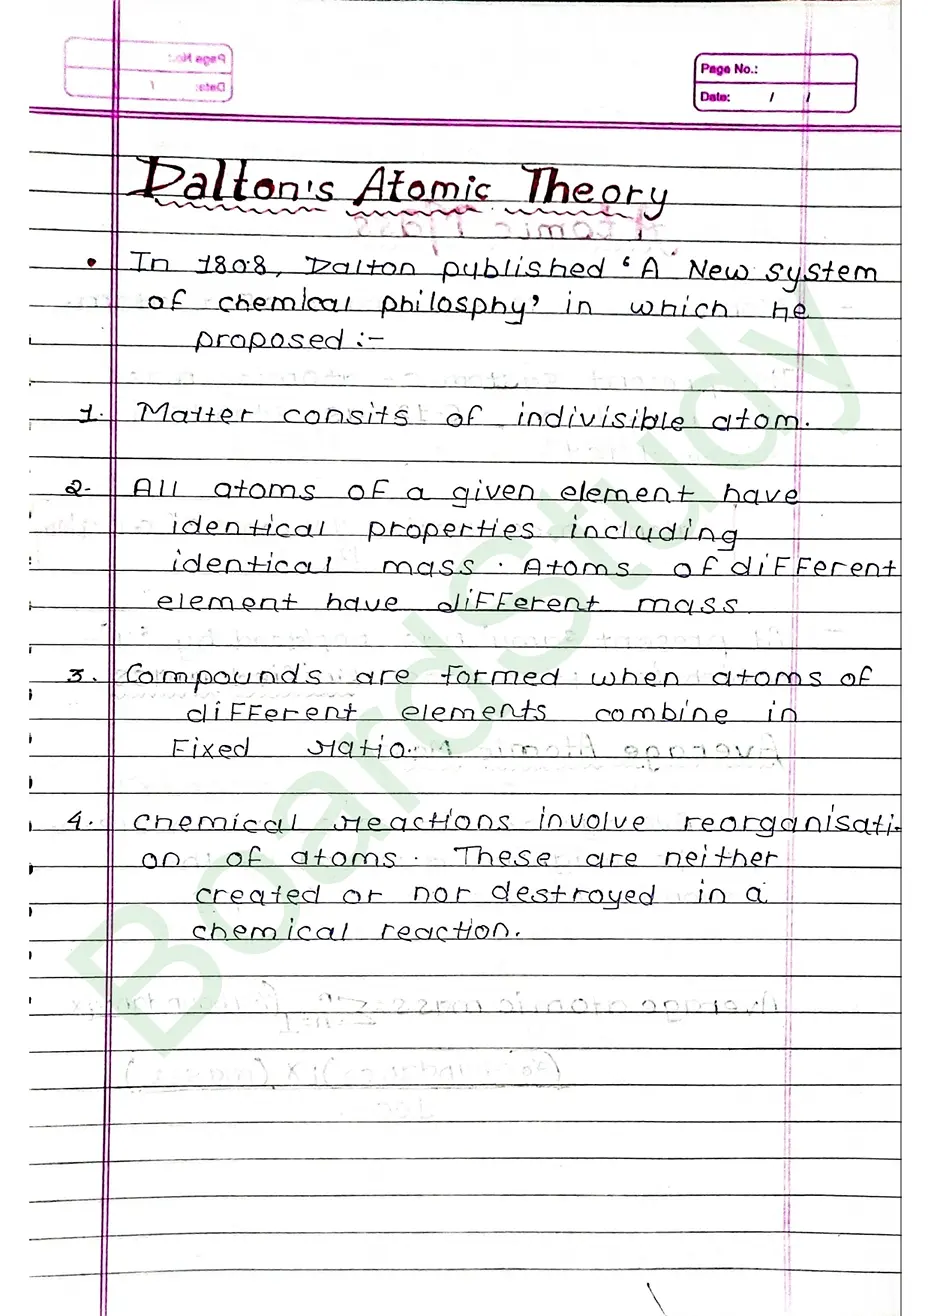 Page No.:
Date: / /
Dalton's Atomic Theory
• In 1808, Dalton published 'A New system
of chemical philosphy' in which he
proposed :-
1. Matter consits of indivisible atom.
2. All atoms of a given element have
identical properties including
identical mass. Atoms of different
element have different mass
3. Compounds are formed when atoms of
different elements combine in
Fixed ratio.
4. chemical reactions involve reorganisati-
on of atoms. These are neither
created or nor destroyed in a
chemical reaction.
BoardStudy